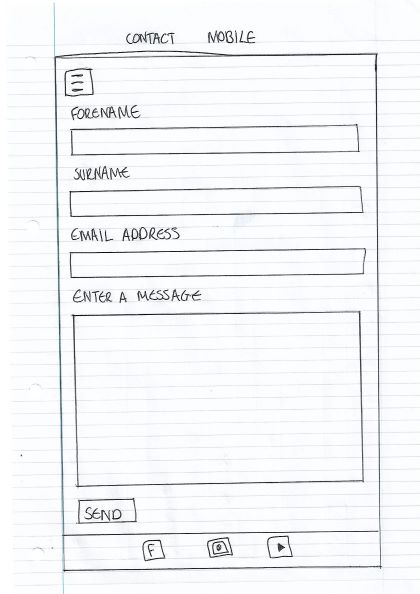 CONTACT MOBILE
FORENAME
SURNAME
EMAIL ADDRESS
ENTER A MESSAGE
SEND
F